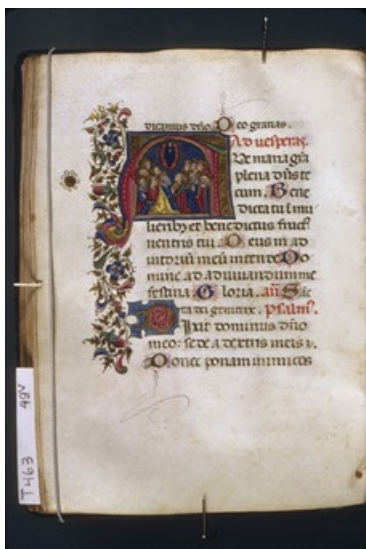 dicamus dño. Deo gratias.
Ad vesperas.
Ave maria gra
plena dñs te
cum. Bene
dicta tu ī mu
lierib3 et benedictus fruct9
uentris tui. Deus in ad
iutoriū meū intende Do
mine ad adiuuandum me
festina. Gloria. añ. Sāc
ta dei genitrix. psalm9.
Dixit dominus dño
meo: sede a dextris meis
Donec ponam inimicos
49v
T463